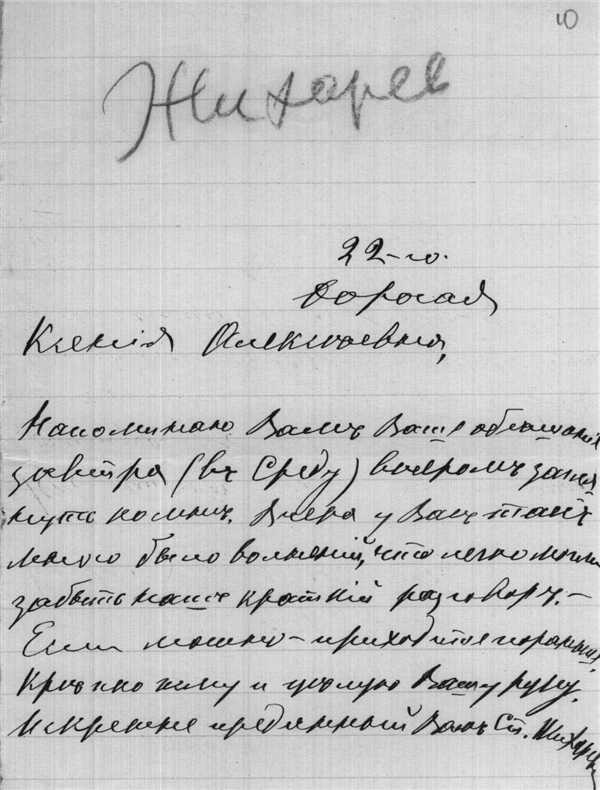 10
Жихарев
22-го.
Дорогая
Ксенія Алексѣевна,
Напоминаю Вамъ Ваше обѣщаніе
завтра (въ Среду) вечеромъ загля
нуть ко мнѣ. Вчера у Васъ такъ
много было волненій, что легко могли
забыть нашъ краткій разговоръ. –
Если можно – приходите пораньше.
Крѣпко жму и цѣлую Вашу руку.
Искренне преданный Вамъ Ст. Жихарев